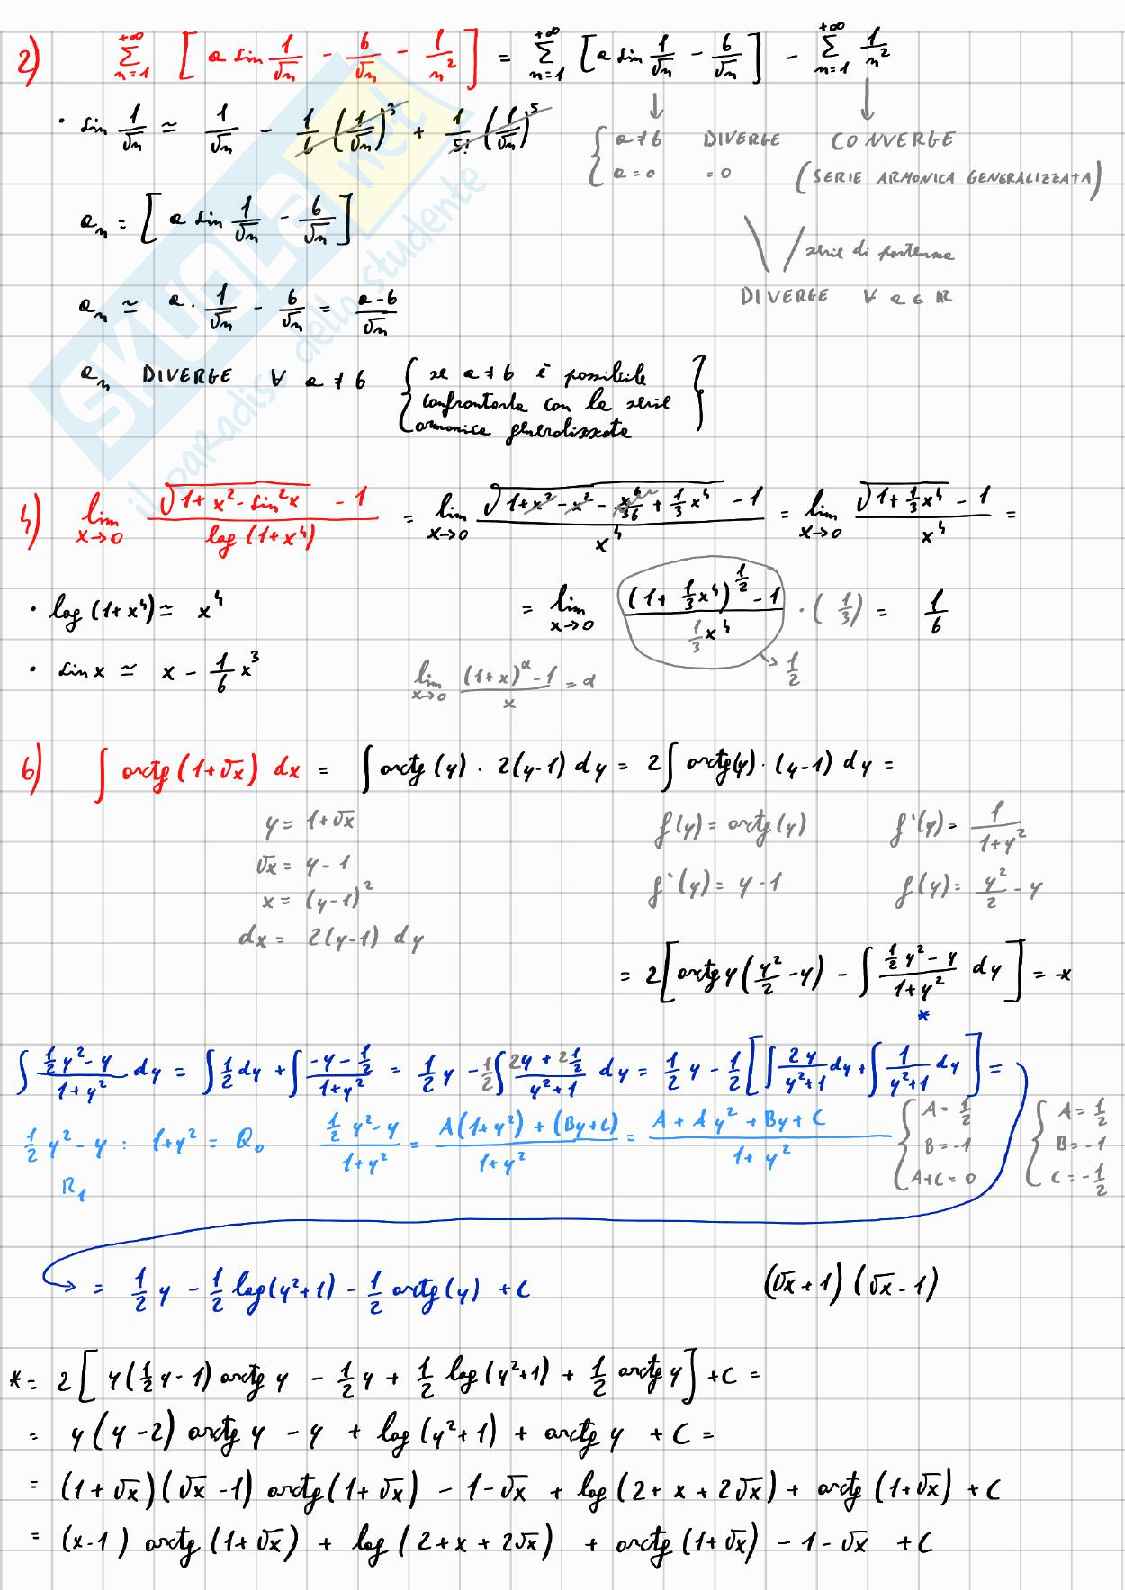 2) \sum_{n=1}^{+\infty} [a sin 1/√n - 6/√n - 1/n²] = \sum_{n=1}^{+\infty} [a sin 1/√n - 6/√n] - \sum_{n=1}^{+\infty} 1/n²
· sin 1/√n ≃ 1/√n - 1/6 (1/√n)³ + 1/5! (1/√n)⁵
{ a≠6 DIVERGE
a=0 =0
CONVERGE
(SERIE ARMONICA GENERALIZZATA)
a_n = [a sin 1/√n - 6/√n]
serie di partenza
DIVERGE ∀ a ∈ R
a_n ≃ a · 1/√n - 6/√n = a-6/√n
a_n DIVERGE ∀ a ≠ 6 { se a≠6 è possibile
confrontarla con la serie
armonica generalizzata }
4) lim x→0 (√(1+x²-sin²x) - 1)/log(1+x⁴) = lim x→0 (√(1+x²-x²-x⁶/36+1/3x⁴) - 1)/x⁴ = lim x→0 (√(1+1/3x⁴) - 1)/x⁴ =
· log(1+x⁴) ≃ x⁴
= lim x→0 ((1+1/3x⁴)^{1/2} - 1)/(1/3x⁴) · (1/3) = 1/6
· sin x ≃ x - 1/6 x³
lim x→0 ((1+x)^α - 1)/x = α
→ 1/2
6) ∫ arctg(1+√x) dx = ∫ arctg(y) · 2(y-1) dy = 2∫ arctg(y) · (y-1) dy =
y = 1+√x
√x = y-1
x = (y-1)²
dx = 2(y-1) dy
f(y) = arctg(y) f'(y) = 1/(1+y²)
f'(y) = y-1 f(y) = y²/2 - y
= 2[arctg y (y²/2 - y) - ∫ (1/2y² - y)/(1+y²) dy] = *
*
∫ (1/2y²-y)/(1+y²) dy = ∫ 1/2 dy + ∫ (-y-1/2)/(1+y²) = 1/2 y - 1/2 ∫ (2y+2 1/2)/(y²+1) dy = 1/2 y - 1/2 [∫ 2y/(y²+1) dy + ∫ 1/(y²+1) dy] =
1/2 y² - y : 1+y² = Q₀
R₁
(1/2 y²-y)/(1+y²) = (A(1+y²) + (By+C))/(1+y²) = (A + Ay² + By + C)/(1+y²)
{ A=1/2
B=-1
A+C=0
{ A=1/2
B=-1
C=-1/2
→ = 1/2 y - 1/2 log(y²+1) - 1/2 arctg(y) + C
(√x+1)(√x-1)
* = 2[y(1/2y-1) arctg y - 1/2 y + 1/2 log(y²+1) + 1/2 arctg y] + C =
= y(y-2) arctg y - y + log(y²+1) + arctg y + C =
= (1+√x)(√x-1) arctg(1+√x) - 1-√x + log(2+x+2√x) + arctg(1+√x) + C
= (x-1) arctg(1+√x) + log(2+x+2√x) + arctg(1+√x) - 1-√x + C
SKUOLA.net
il paradiso dello studente